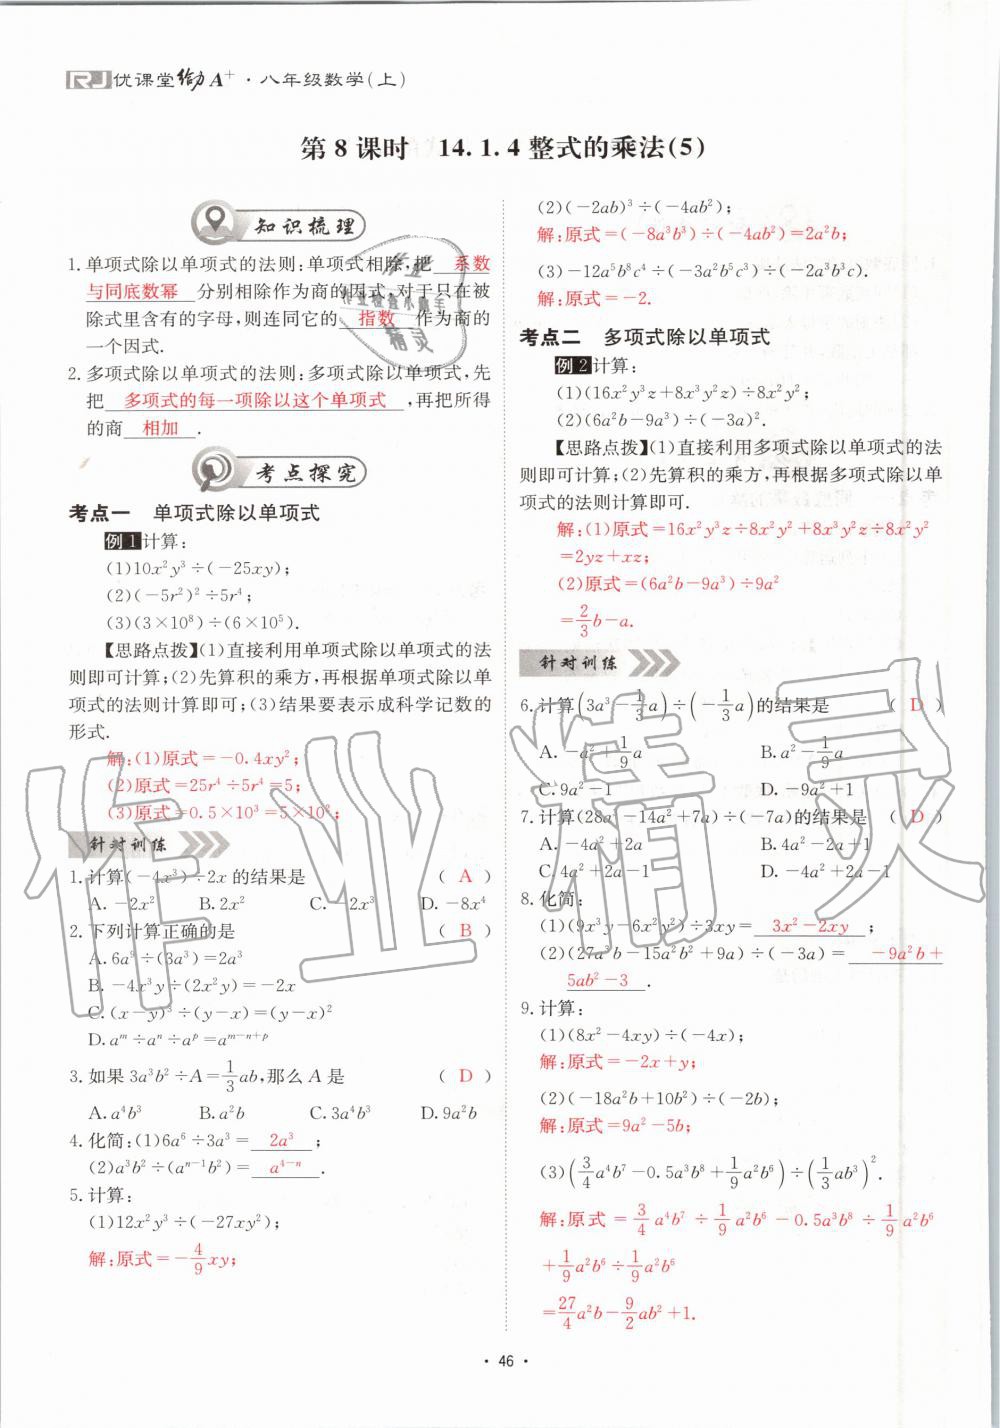 RJ 优课堂给力A⁺·八年级数学(上)
第8课时 14.1.4整式的乘法(5)
知识梳理
1.单项式除以单项式的法则:单项式相除,把 系数
与同底数幂 分别相除作为商的因式,对于只在被
除式里含有的字母,则连同它的 指数 作为商的
一个因式.
2.多项式除以单项式的法则:多项式除以单项式,先
把 多项式的每一项除以这个单项式 ,再把所得
的商 相加 .
考点探究
考点一 单项式除以单项式
例1 计算:
(1)10x²y³÷(-25xy);
(2)(-5r²)²÷5r⁴;
(3)(3×10⁸)÷(6×10⁵).
【思路点拨】(1)直接利用单项式除以单项式的法
则即可计算;(2)先算积的乘方,再根据单项式除以单
项式的法则计算即可;(3)结果要表示成科学记数的
形式.
解:(1)原式=-0.4xy²;
(2)原式=25r⁴÷5r⁴=5;
(3)原式=0.5×10³=5×10²;
针对训练
1.计算(-4x³)÷2x的结果是 ( A )
A.-2x² B.2x² C.-2x³ D.-8x⁴
2.下列计算正确的是 ( B )
A.6a⁹÷(3a³)=2a³
B.-4x³y÷(2x²y)=-2x
C.(x-y)³÷(y-x)=(y-x)²
D.aᵐ÷aⁿ÷aᵖ=aᵐ⁻ⁿ⁺ᵖ
3.如果3a³b²÷A=1/3ab,那么A是 ( D )
A.a⁴b³ B.a²b C.3a⁴b³ D.9a²b
4.化简:(1)6a⁶÷3a³= 2a³ ;
(2)a³b²÷(aⁿ⁻¹b²)= a⁴⁻ⁿ .
5.计算:
(1)12x²y³÷(-27xy²);
解:原式=-4/9xy;
(2)(-2ab)³÷(-4ab²);
解:原式=(-8a³b³)÷(-4ab²)=2a²b;
(3)-12a⁵b⁸c⁴÷(-3a²b⁵c³)÷(-2a³b³c).
解:原式=-2.
考点二 多项式除以单项式
例2 计算:
(1)(16x²y³z+8x³y²z)÷8x²y²;
(2)(6a²b-9a³)÷(-3a)².
【思路点拨】(1)直接利用多项式除以单项式的法
则即可计算;(2)先算积的乘方,再根据多项式除以单
项式的法则计算即可.
解:(1)原式=16x²y³z÷8x²y²+8x³y²z÷8x²y²
=2yz+xz;
(2)原式=(6a²b-9a³)÷9a²
=2/3b-a.
针对训练
6.计算(3a³-1/3a)÷(-1/3a)的结果是 ( D )
A.-a²+1/9a B.a²-1/9a
C.9a²-1 D.-9a²+1
7.计算(28a³-14a²+7a)÷(-7a)的结果是 ( D )
A.-4a²+2a B.4a²-2a+1
C.4a²+2a-1 D.-4a²+2a-1
8.化简:
(1)(9x³y-6x²y²)÷3xy= 3x²-2xy ;
(2)(27a³b-15a²b²+9a)÷(-3a)= -9a²b+
5ab²-3 .
9.计算:
(1)(8x²-4xy)÷(-4x);
解:原式=-2x+y;
(2)(-18a²b+10b²)÷(-2b);
解:原式=9a²-5b;
(3)(3/4a⁴b⁷-0.5a³b⁸+1/9a²b⁶)÷(1/3ab³)².
解:原式=3/4a⁴b⁷÷1/9a²b⁶-0.5a³b⁸÷1/9a²b⁶
+1/9a²b⁶÷1/9a²b⁶
=27/4a²b-9/2ab²+1.
·46·
作业精灵